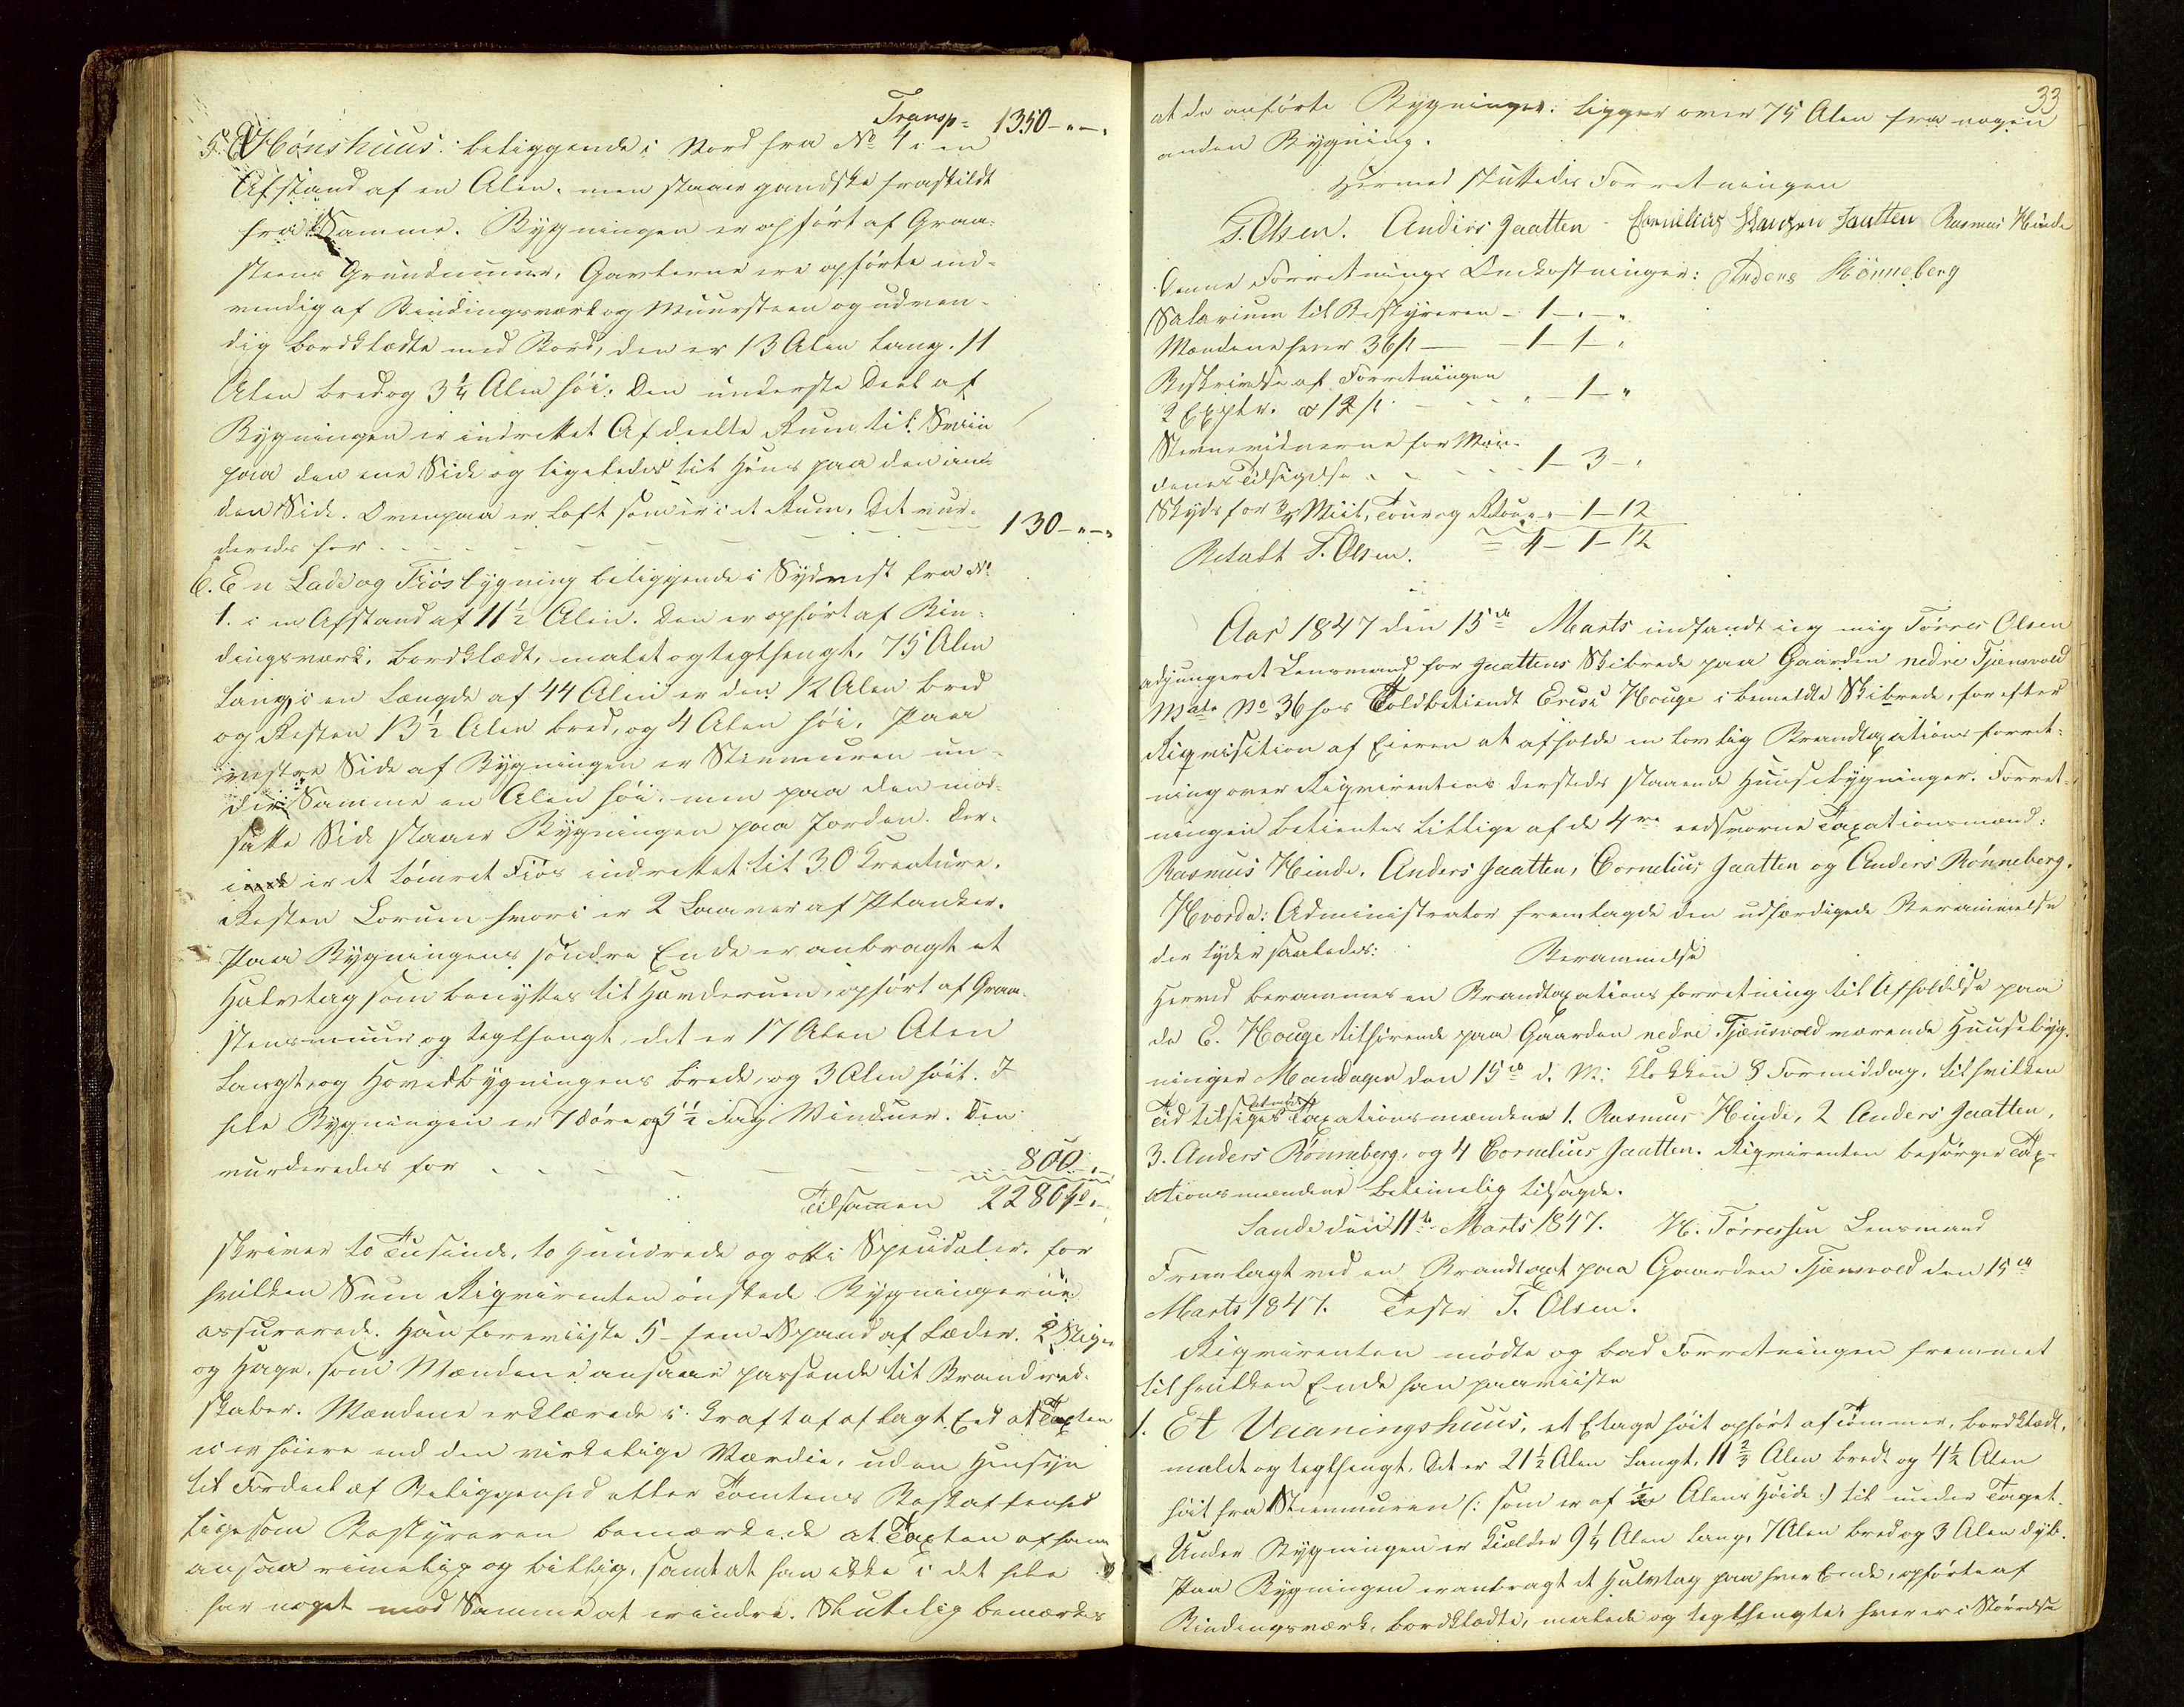 Transp = 1350-"-"
5. Et Hønshuus: beliggende i Nord fra No 4 i en
Afstand af en Alen, men staaer gandske fraskildt
fra Samme. Bygningen er opført af Graa-
steens Grundmuur, Gavlerne ere opførte ind-
vendig af Bindingsværk og Muursteen og udven-
dig bordklædte med Bord, den er 13 Alen lang, 11
Alen bred og 3¼ Alen høi: Den underste Deel af
Bygningen er indrettet Afdeelte Rum til Sviin
paa den ene Side og ligeledes til Høns paa den an-
den Side. Ovenpaa er Loft som er i et Rum. Det vur-
deredes for - - - - - 130-"-"
6. En Lade og Fiøsbygning beliggende i Sydvest fra No
1. i en Afstand af 11½ Alen. Den er opført af Bin-
dingsværk, bordklædt, malet og teglhengt, 75 Alen
lang, i en Længde af 44 Alen er den 12 Alen bred
og Resten 13½ Alen bred, og 4 Alen høi. Paa
vestre Side af Bygningen er Steenmuren un-
der Samme en Alen høi, men paa den mod-
satte Side staaer Bygningen paa Jorden. Der-
inde er et tømret Fiøs indrettet til 30 Kreature.
Resten Lorum hvori er 2 Laaver af Planker.
Paa Bygningens søndre Ende er anbragt et
Halvtag som benyttes til Havderum, opført af Graa-
steensmuur og teglhengt, det er 17 Alen Alen
langt, og Hovedbygningens brede, og 3 Alen høit. I
hele Bygningen er 7 Døre og 5½ Fag Vinduer. Den
vurderedes for - - - - - 800-"-
Tilsamen 2280
skriver to Tusinde, to Hundrede og otti Speciedaler. for
hvilken Sum Reqvirenten ønskede Bygningerne
assurerede. Han foreviiste 5 - fem Spand af Læder. 2 Stiger
og Hage, som Mændene ansaae passende til Brandred-
skaber. Mændene erklærede i Kraft af aflagt Eed at Taxten
ei er høiere end den virkelige Værdie, uden Hensyn
til Fordeel af Beliggenhed eller Tomtens Beskaffenhed
ligesom Bestyreren bemærkede at Taxten af ham
ansaa rimelig og billig, samt at han ikke i det hele
har noget mod Samme at erindre. Sluttelig bemærkes
33
at de anførte Bygninger ligger over 75 Alen fra nogen
anden Bygning.
Hermed sluttedes Forretningen
T. Olsen. Anders Jaatten Cornelius Hansen Jaatten Rasmus Hinde
Denne Forretnings Omkostninger: Anders Rönneberg
Salarium til Bestyreren - 1 - " - "
Mændene hver 36 s - - 1 - 1 - "
Beskrivelse af Forretningen
2 Explr. a 12 s - - - " - 1 - "
Stevnevidnerne for Mæn-
denes Tilsigelse - - - - 1 - 3 - "
Skyds for ¾ Miil, Tour og Retour " - 1 - 12
Betalt T. Olsen. = 4 - 1 - 12
Aar 1847 den 15de Marts indfandt jeg mig Tørres Olsen
adjungeret Lensmand for Jaattens Skibrede paa Gaarden nedre Tjensvold
Mate No 36 hos Toldbetiendt Houge i bemeldte Skibrede, for efter
Reqvisition af Eieren at afholde en lovlig Brandtaxations forret-
ning over Reqvirentens dersteds staaende Huusebygninger. Forret-
ningen betientes tillige af de 4re eedsvorne Taxationsmænd:
Rasmus Hinde, Anders Jaatten, Cornelius Jaatten og Anders Rønneberg.
Hvorda: Administrator fremlagde den udfærdigede Berammelse
der lyder saaledes: Berammelse
Herved berammes en Brandtaxations forretning til Afholdelse paa
de E. Houge tilhørende paa Gaarden nedre Tjensvold værende Huusebyg-
ninger Mandagen den 15de d. M: Klokken 8 Formiddag, til hvilken
Tid tilsiges Taxationsmændene 1. Rasmus Hinde, 2 Anders Jaatten,
3. Anders Rønneberg, og 4 Cornelius Jaatten. Reqvirenten besørger Tax-
ationsmændene betimelig tilsagde.
Sande den 11te Marts 1847. H. Tørressen Lensmand
Fremlagt ved en Brandtaxt paa Gaarden Tjensvold den 15de
Marts 1847. Teste T. Olsen.
Reqvirenten mødte og bad Forretningen fremmet
til hvilken Ende han paaviiste
1. Et Vaaningshuus, et Etage høit opført af Tømmer, bordklædt,
malet og teglhengt. Det er 21½ Alen langt, 11⅔ Alen bredt og 4½ Alen
høit fra Steenmuren (: som er af ½ Alens Høide :) til under Taget.
Under Bygningen er Kielder 9¼ Alen lang, 7 Alen bred og 3 Alen dyb.
Paa Bygningen er anbragt et Halvtag paa hver Ende, opførte af
Bindingsværk, bordklædte, malede og teglhengte, hver er i Størrelse